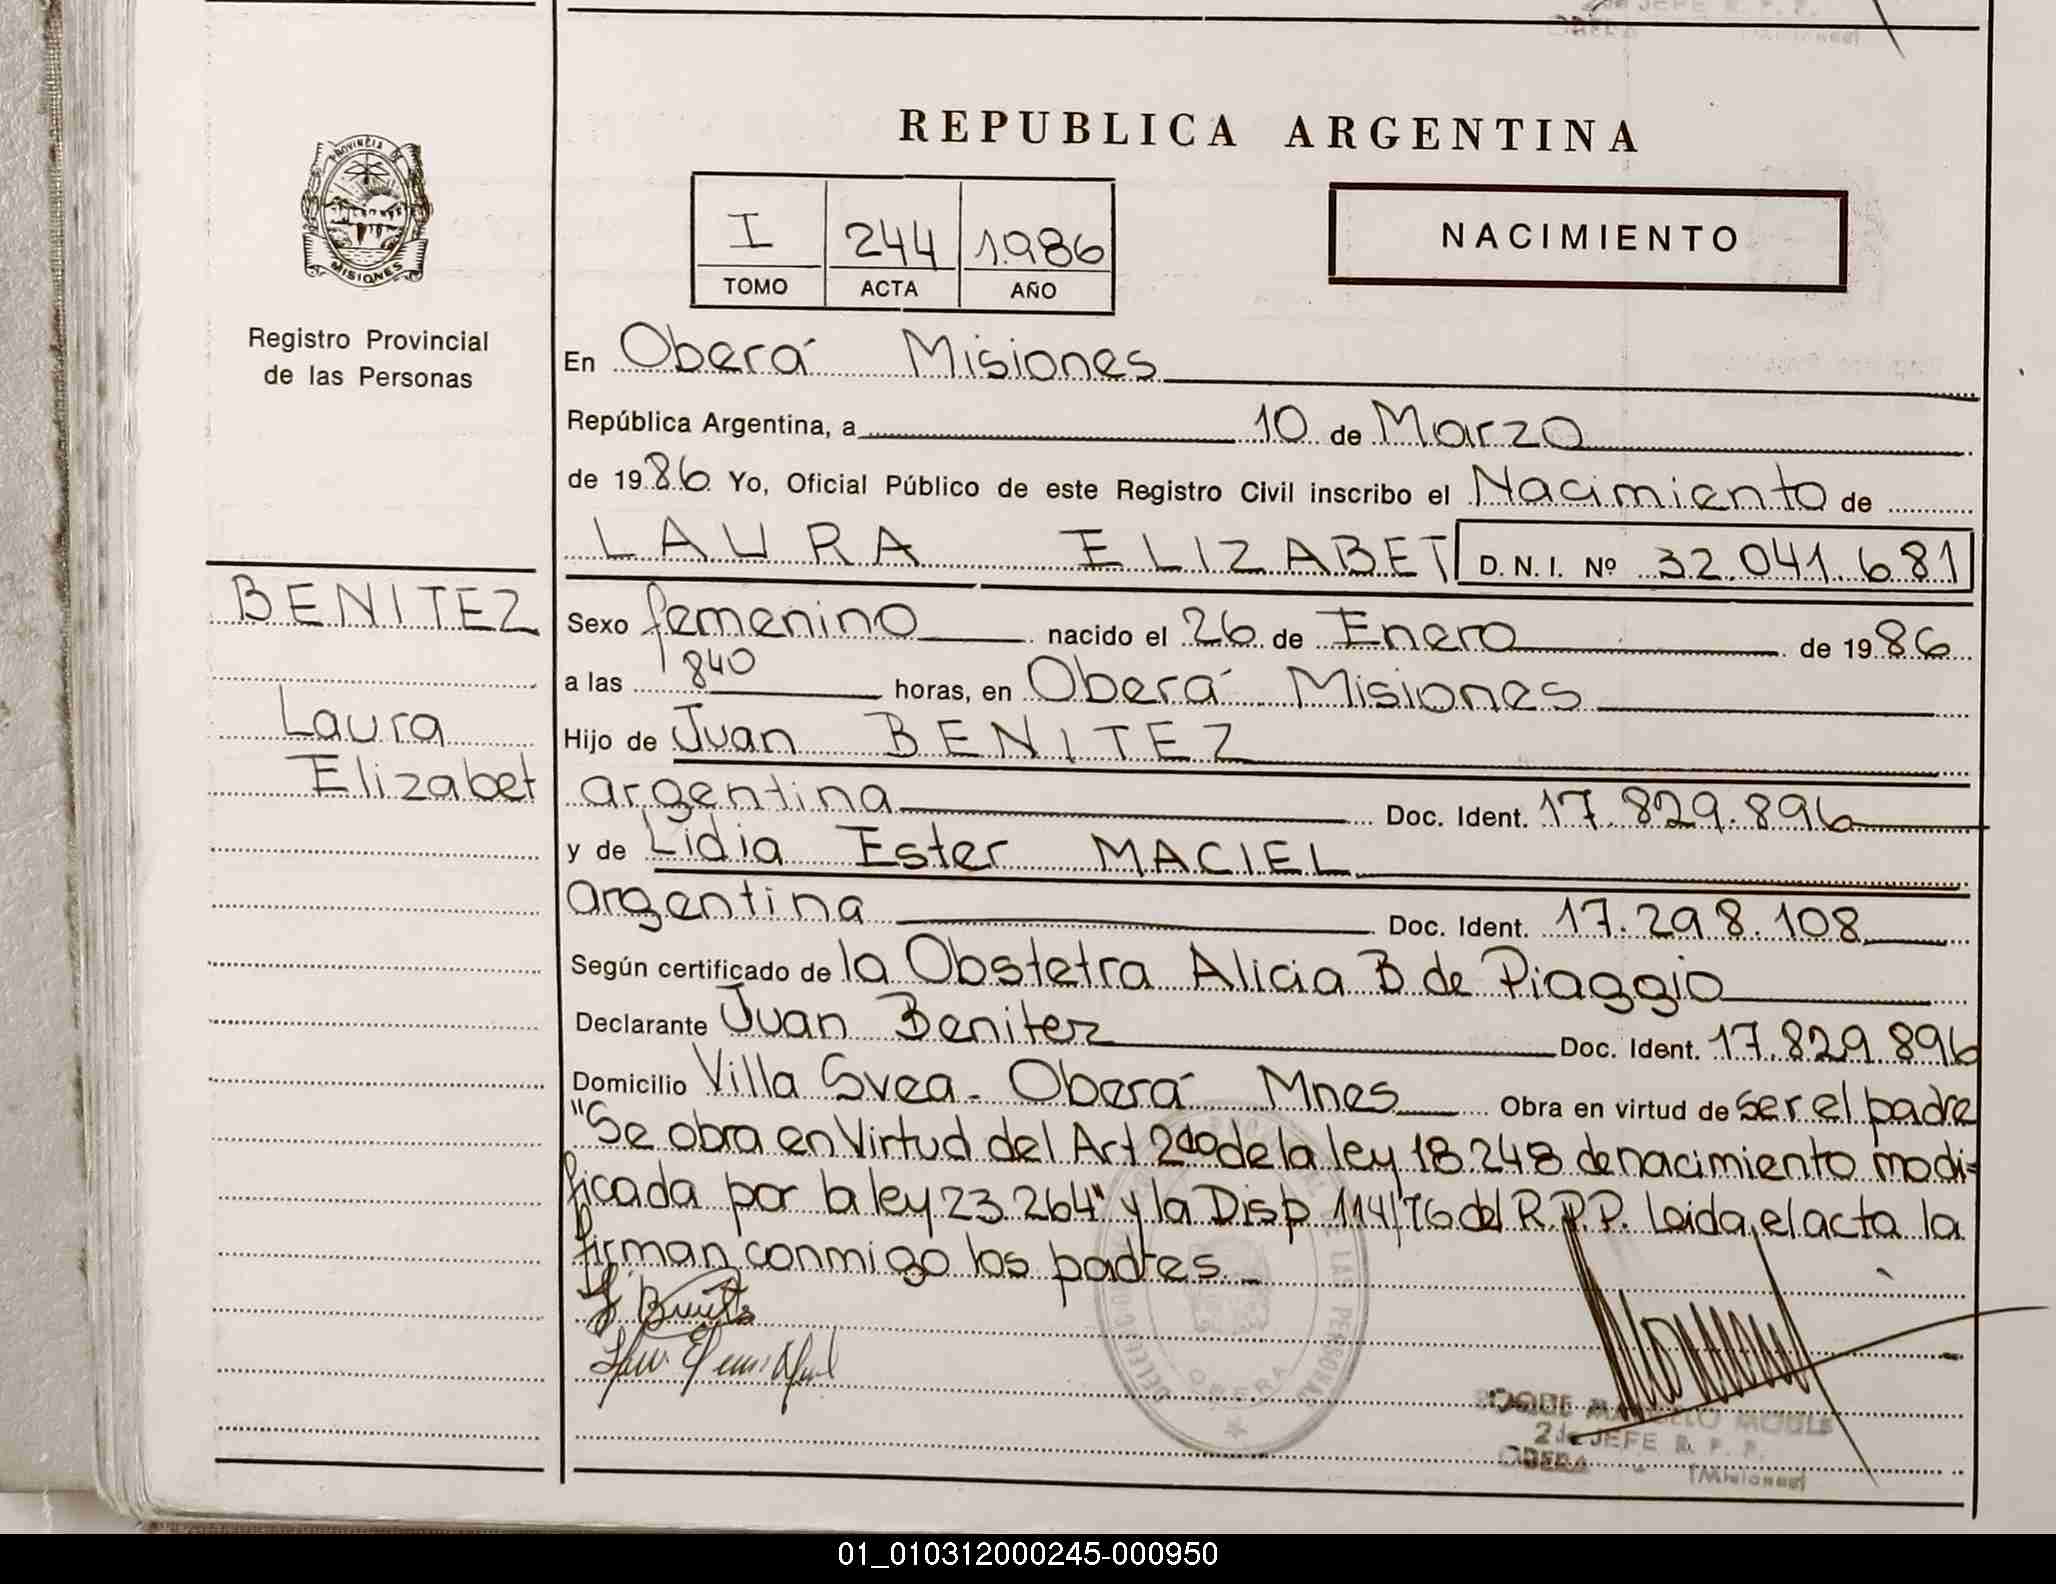 REPUBLICA ARGENTINA
PROVINCIA DE
MISIONES
Registro Provincial
de las Personas
I 244 1986
TOMO ACTA AÑO
NACIMIENTO
En Oberá Misiones
República Argentina, a 10 de Marzo
de 1986 Yo, Oficial Público de este Registro Civil inscribo el Nacimiento de
LAURA ELIZABET D. N. I. Nº 32.041.681
BENITEZ
Laura
Elizabet
Sexo femenino nacido el 26 de Enero de 1986
a las 840 horas, en Oberá Misiones
Hijo de Juan BENITEZ
argentina Doc. Ident. 17.829.896
y de Lidia Ester MACIEL
argentina Doc. Ident. 17.298.108
Según certificado de la Obstetra Alicia B de Piaggio
Declarante Juan Benitez Doc. Ident. 17.829.896
Domicilio Villa Svea - Oberá Mnes Obra en virtud de ser el padre
"Se obra en Virtud del Art 2do de la ley 18.248 de nacimiento modi=
ficada por la ley 23.264" y la Disp 114/76 del R.P.P. Leida el acta la
firman conmigo los padres.-
J. Benitez
DE LAS PERSONAS
OBERA
ROQUE
2do JEFE R. P. P.
OBERA - (Misiones)
01_010312000245-000950